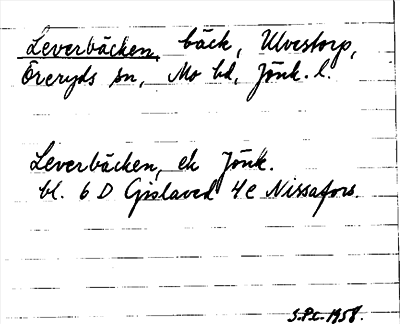 Leverbäcken, bäck, Ulvestorp,
Öreryds sn, Mo hd, Jönk. l.
Leverbäcken, ek Jönk.
bl. 6 D Gislaved 4e Nissafors.
S.P.L. 1958.